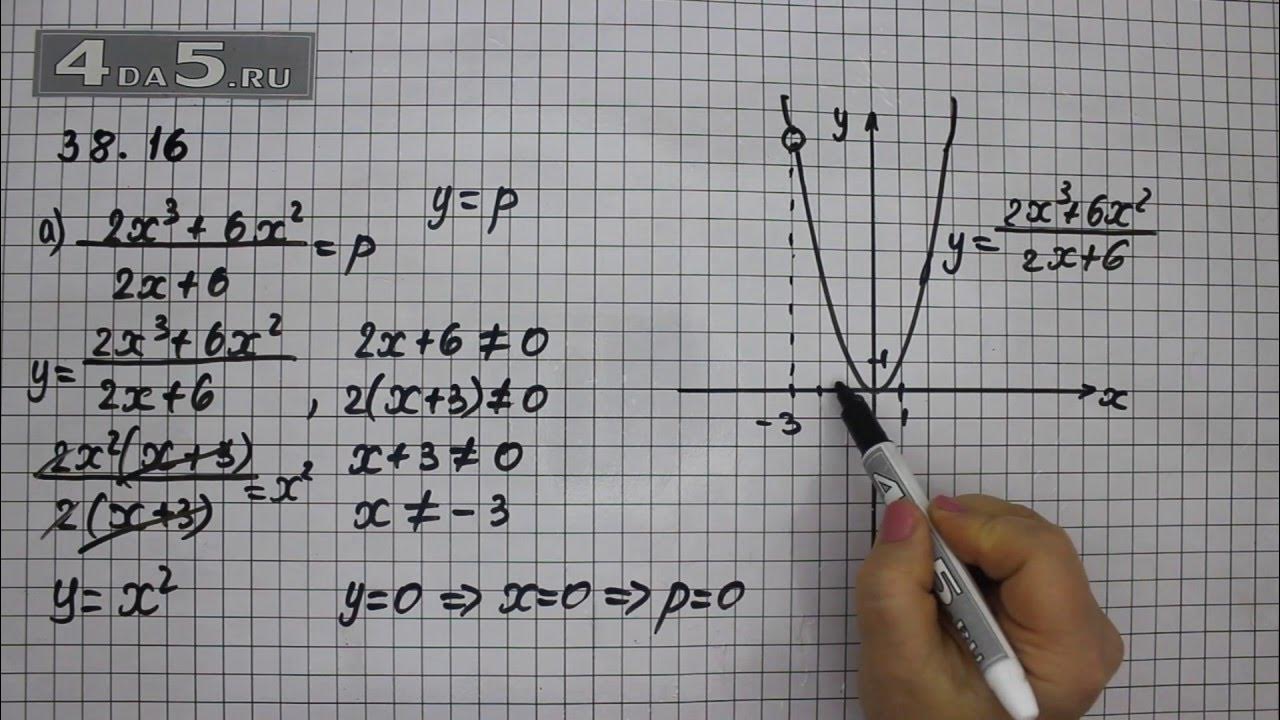 4DA5.RU
38.16
а) (2x³ + 6x²)/(2x + 6) = p
y = p
y = (2x³ + 6x²)/(2x + 6) ,
2x + 6 ≠ 0
2(x + 3) ≠ 0
(2x²(x + 3))/(2(x + 3)) = x²
x + 3 ≠ 0
x ≠ - 3
y = x²
y = 0 => x = 0 => p = 0
y
y = (2x³ + 6x²)/(2x + 6)
1
x
- 3
1
4
5